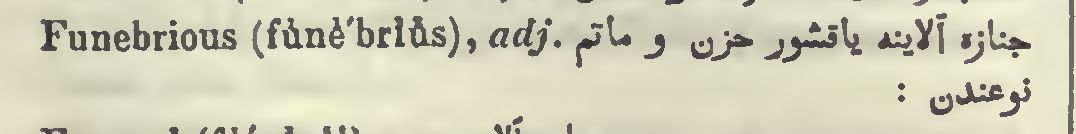 Funebrious (fŭnĕ′brĭŭs), adj. جنازه آلاینه یاقشور حزن و ماتم
نوعندن :